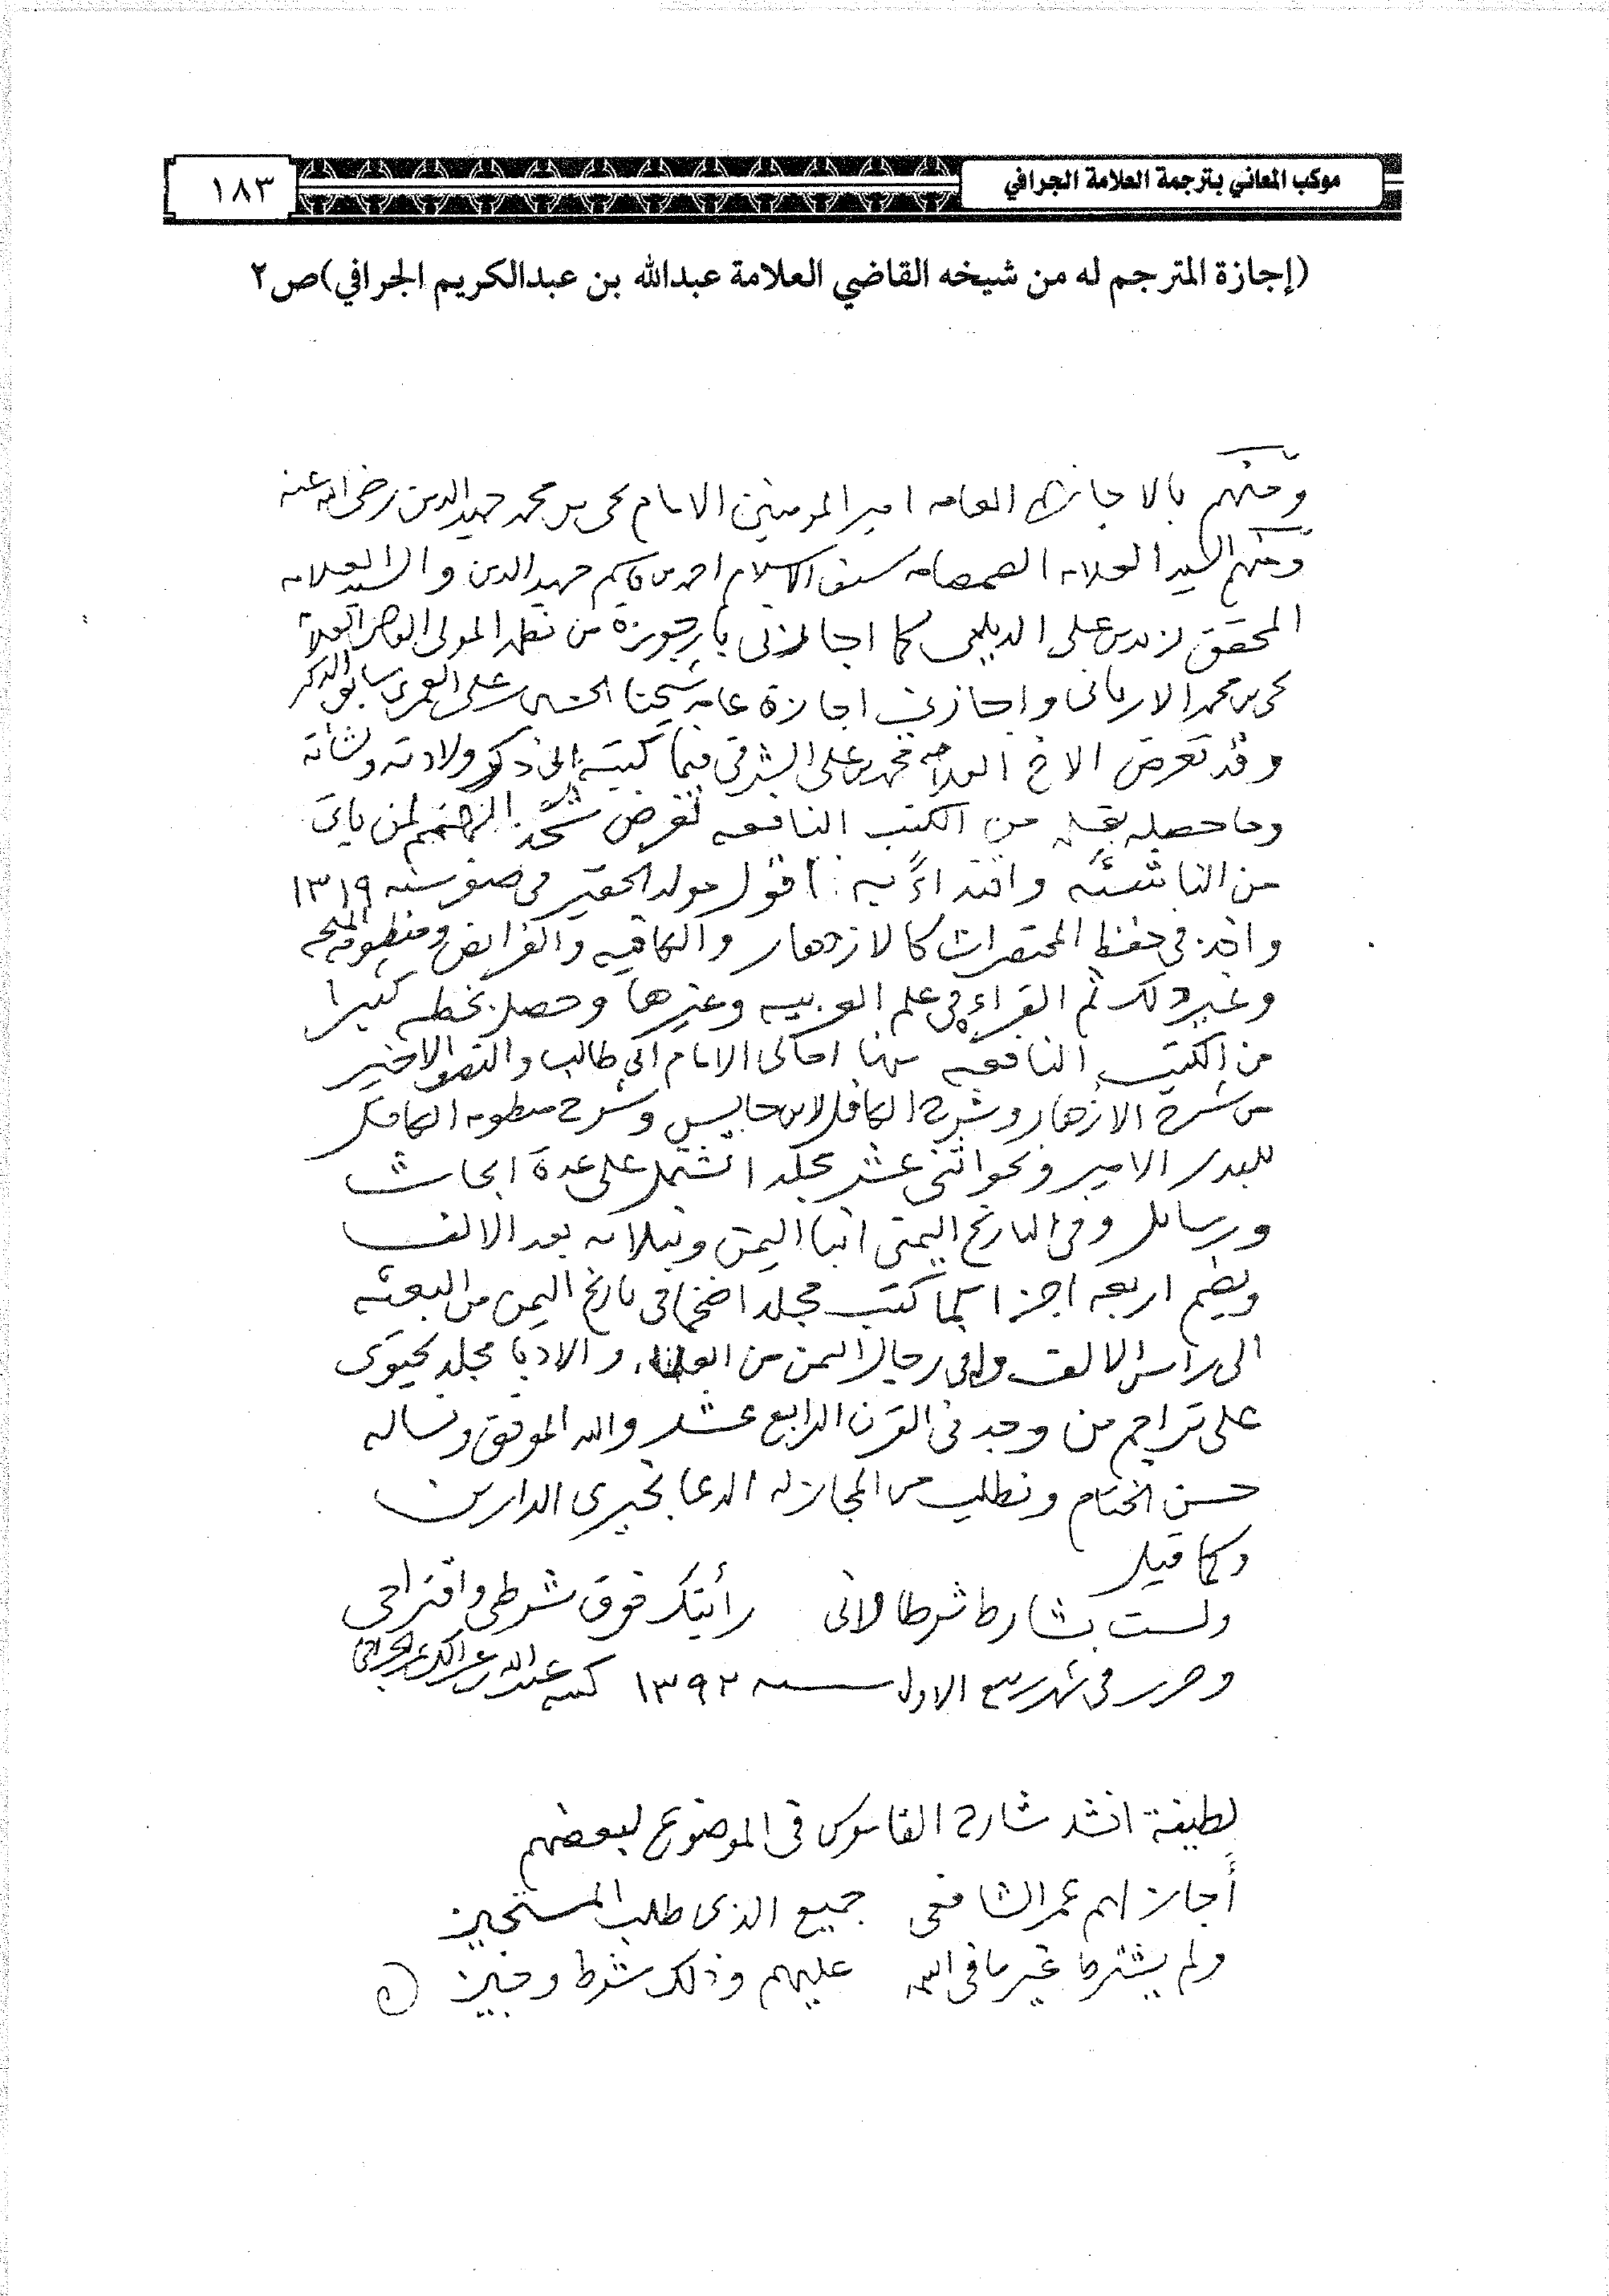 موكب المعاني بترجمة العلامة الجرافي
١٨٣
(إجازة المترجم له من شيخه القاضي العلامة عبدالله بن عبدالكريم الجرافي)ص٢
ومنهم بالاجازة العامه امير المومنين الامام يحى بن محمد حميد الدين رضى الله عنه
ومنهم السيد العلامه الصمصامه سيف الاسلام احمد بن قاسم حميد الدين والسيد العلامه
المحقق زيد بن على الديلمى كما اجازنى بارجوزة من نظمه المولى العلامة
يحى بن محمد الاريانى واجازنى اجازة عامه شيخنا الحسين بن على العمرى سابق الذكر
وقد تعرض الاخ العلامه محمد بن على الشرفى فيما كتبه الى ذكر ولادته ونشأته
وما حصله بقلمه من الكتب النافعه لغرض شحذ الهمم لمن ياتى
من الناشئه واقتداءً به : اقول مولد الحقير فى صفر سنه ١٣١٩
واخذ فى حفظ المختصرات كالازهار والكافيه والفرائض ومنظومه
وغير ذلك ثم القراءه فى علم العربيه وغيرها وحصل بخطه كثيرا
من الكتب النافعه منها امالى الامام ابى طالب والنصف الاخير
من شرح الازهار وشرح الكافل لابن حابس وشرح منظومه الكافل
للبدر الامير ونحو اثنى عشر مجلدا تشتمل على عدة ابحاث
ورسائل وفى التاريخ اليمنى انبا اليمن ونبلائه بعد الالف
ويضم اربعه اجزا كما كتب مجلدا ضخما فى تاريخ اليمن من البعثه
الى راس الالف وفى رجال اليمن من العلماء والادبا مجلد يحتوى
على تراجم من وجد فى القرن الرابع عشر والله الموفق ونساله
حسن الختام ونطلب من المجاز له الدعا بخيرى الدارين
وكما قيل
ولست بشارط شرطا لانى رأيتك فوق شرطى واقتراحى
وحرر فى شهر ربيع الاول سنه ١٣٩٢ كتبه عبدالله بن عبدالكريم الجرافى
لطيفة انشد شارح القاموس فى الموضوع لبعضهم
أجاز لهم عمر الشافعى جميع الذى طلب المستجيز
ولم يشترط غير ما فى اسمه عليهم وذلك شرط وجيز